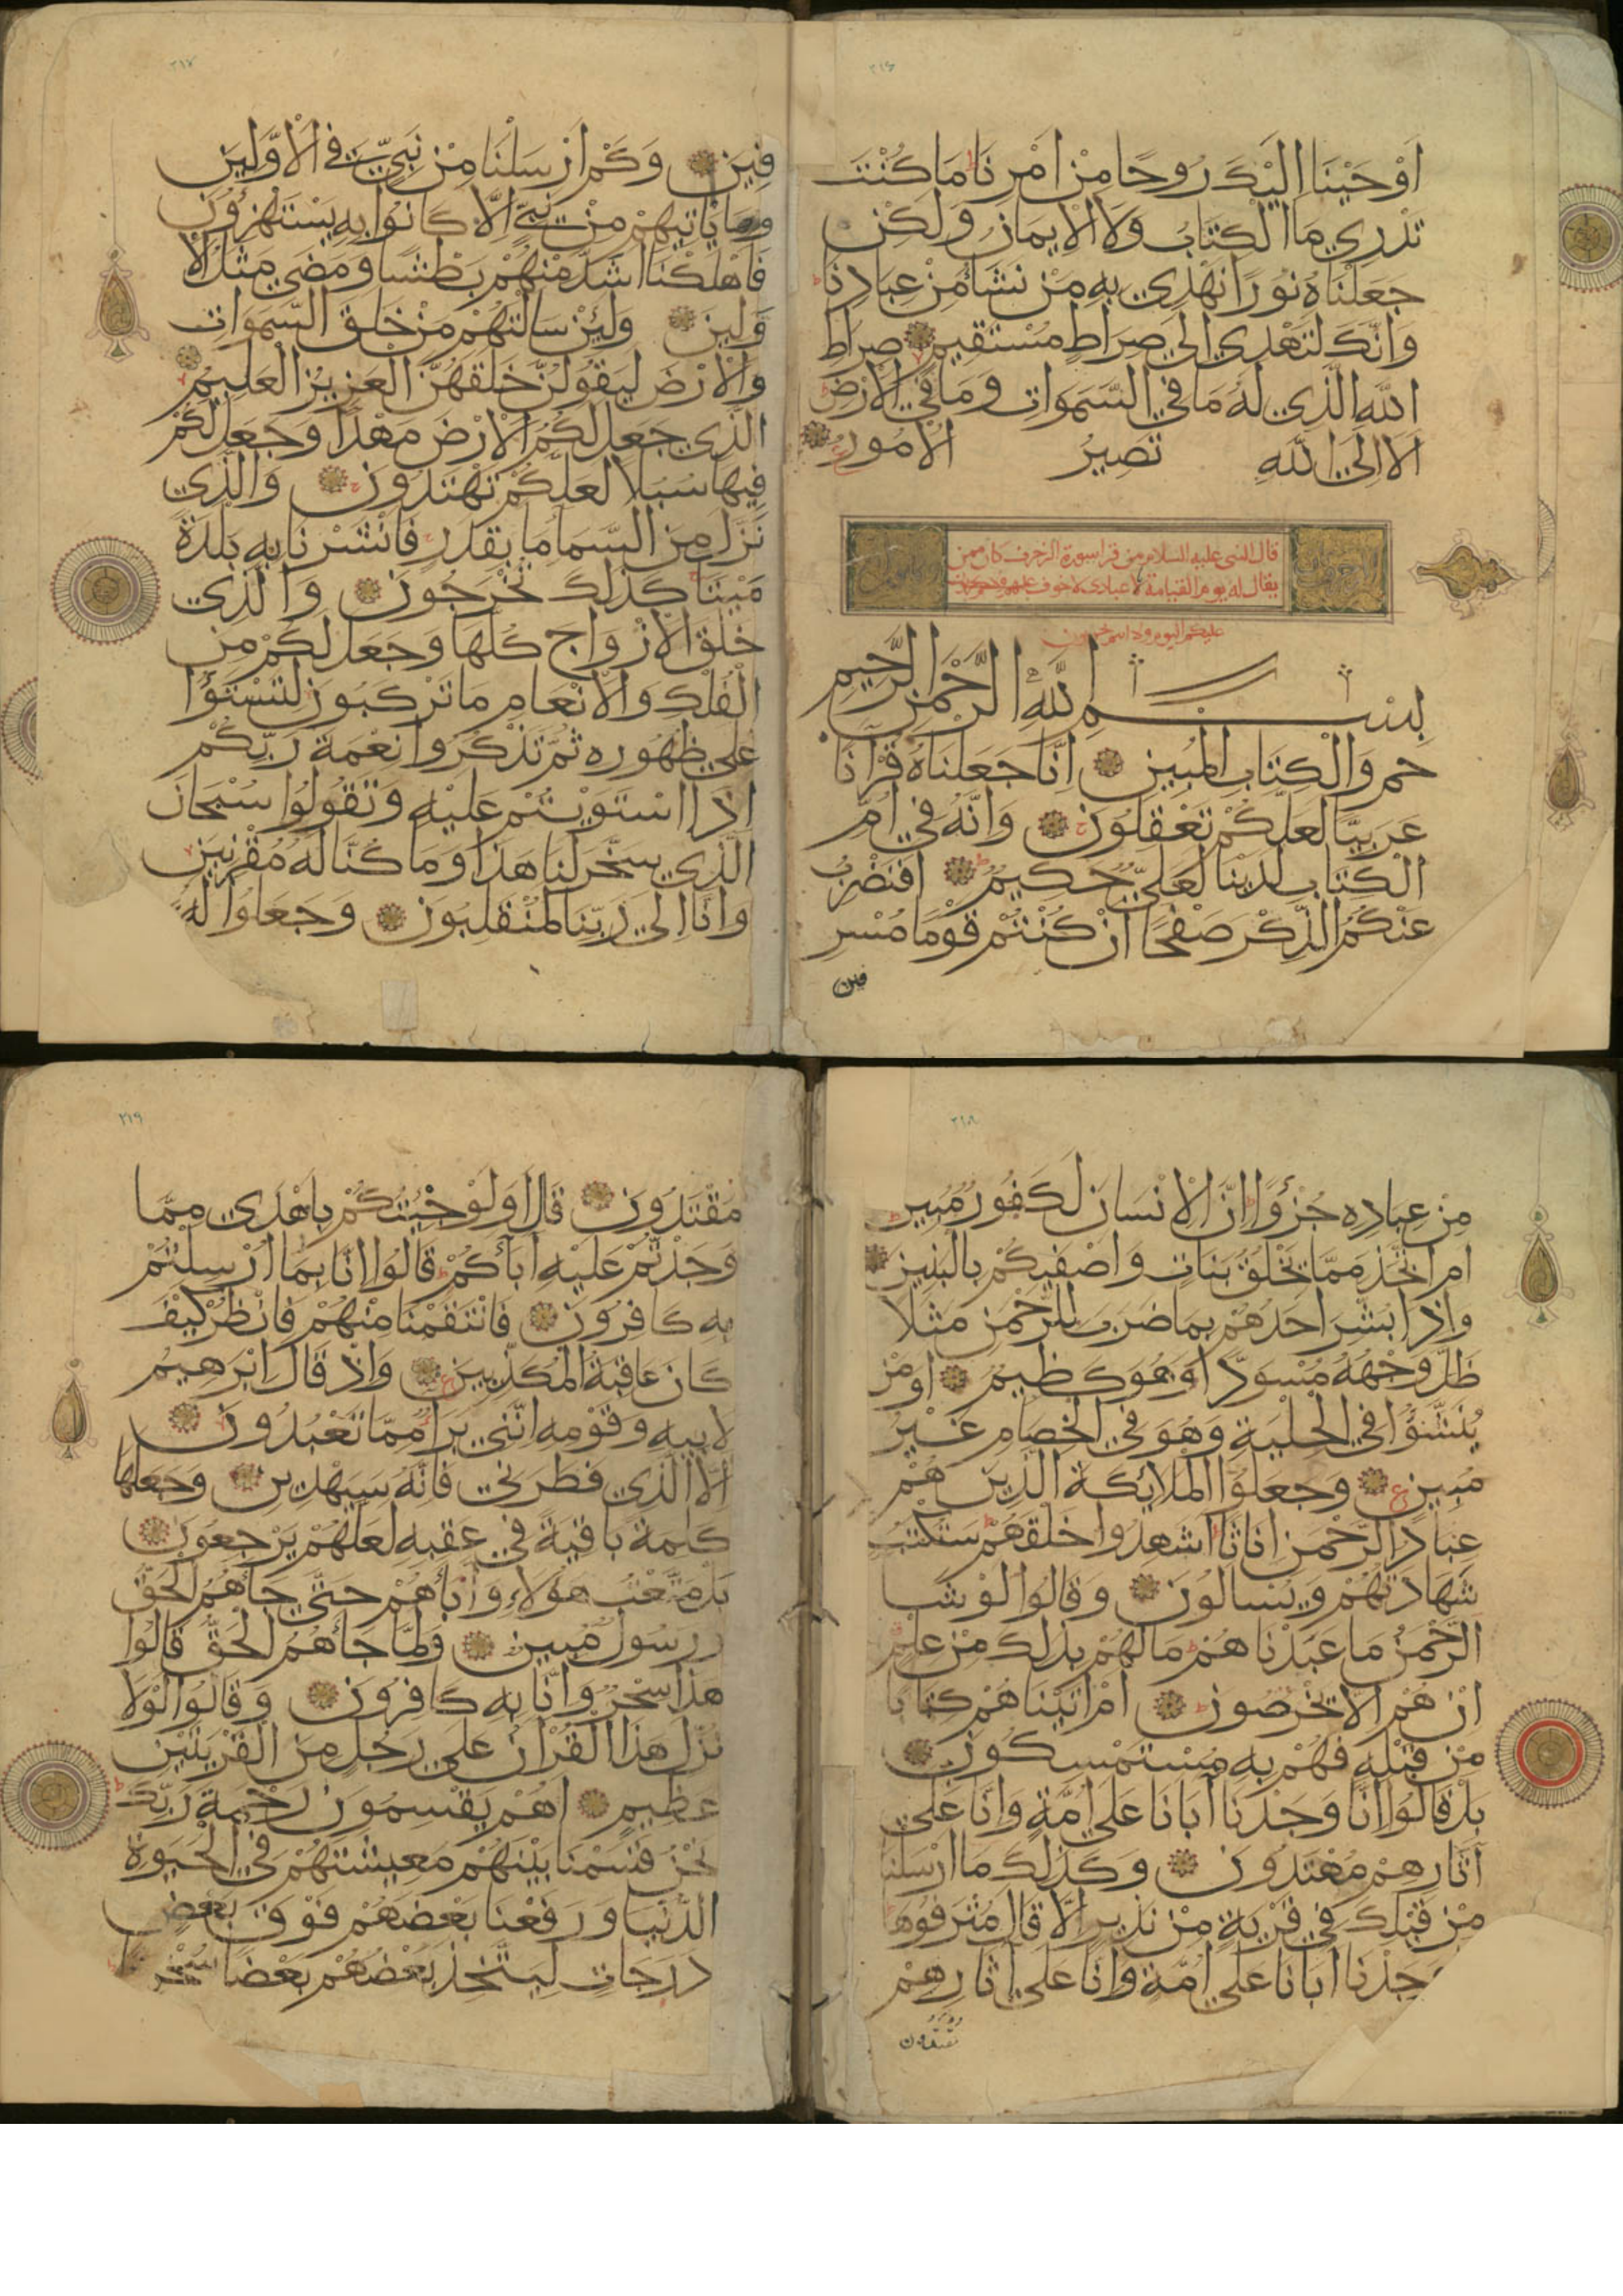 ٢١٦
اَوْحَيْنَا اِلَيْكَ رُوحًا مِنْ اَمْرِنَا مَا كُنْتَ
تَدْرِي مَا الْكِتَابُ وَلَا الْاِيمَانُ وَلَكِنْ
جَعَلْنَاهُ نُورًا نَهْدِي بِهِ مَنْ نَشَا مِنْ عِبَادِنَا
وَاِنَّكَ لَتَهْدِي اِلَى صِرَاطٍ مُسْتَقِيمٍ صِرَاطِ
اللهِ الَّذِي لَهُ مَا فِي السَّمَوَاتِ وَمَا فِي الْاَرْضِ
اَلَا اِلَى اللهِ تَصِيرُ الْاُمُورُ
قال النبي عليه السلام من قرا سورة الزخرف كان ممن
يقال له يوم القيامة لا عبادي لا خوف
عليكم اليوم ولا انتم تحزنون
بِسْمِ اللهِ الرَّحْمَنِ الرَّحِيمِ
حم وَالْكِتَابِ الْمُبِينِ اِنَّا جَعَلْنَاهُ قُرْآنًا
عَرَبِيًّا لَعَلَّكُمْ تَعْقِلُونَ وَاِنَّهُ فِي اُمِّ
الْكِتَابِ لَدَيْنَا لَعَلِيٌّ حَكِيمٌ اَفَنَضْرِبُ
عَنْكُمُ الذِّكْرَ صَفْحًا اَنْ كُنْتُمْ قَوْمًا مُسْرِ
فين
٢١٧
فِينَ وَكَمْ اَرْسَلْنَا مِنْ نَبِيٍّ فِي الْاَوَّلِينَ
وَمَا يَاْتِيهِمْ مِنْ نَبِيٍّ اِلَّا كَانُوا بِهِ يَسْتَهْزِؤُنَ
فَاَهْلَكْنَا اَشَدَّ مِنْهُمْ بَطْشًا وَمَضَى مَثَلُ الْاَ
وَّلِينَ وَلَئِنْ سَاَلْتَهُمْ مَنْ خَلَقَ السَّمَوَاتِ
وَالْاَرْضَ لَيَقُولُنَّ خَلَقَهُنَّ الْعَزِيزُ الْعَلِيمُ
الَّذِي جَعَلَ لَكُمُ الْاَرْضَ مَهْدًا وَجَعَلَ لَكُمْ
فِيهَا سُبُلًا لَعَلَّكُمْ تَهْتَدُونَ وَالَّذِي
نَزَّلَ مِنَ السَّمَا مَا بِقَدَرٍ فَاَنْشَرْنَا بِهِ بَلْدَةً
مَيْتًا كَذَلِكَ تُخْرَجُونَ وَالَّذِي
خَلَقَ الْاَزْوَاجَ كُلَّهَا وَجَعَلَ لَكُمْ مِنَ
الْفُلْكِ وَالْاَنْعَامِ مَا تَرْكَبُونَ لِتَسْتَوُا
عَلَى ظُهُورِهِ ثُمَّ تَذْكُرُوا نِعْمَةَ رَبِّكُمْ
اِذَا اسْتَوَيْتُمْ عَلَيْهِ وَتَقُولُوا سُبْحَانَ
الَّذِي سَخَّرَ لَنَا هَذَا وَمَا كُنَّا لَهُ مُقْرِنِينَ
وَاِنَّا اِلَى رَبِّنَا لَمُنْقَلِبُونَ وَجَعَلُوا لَهُ
٢١٨
مِنْ عِبَادِهِ جُزْؤًا اِنَّ الْاِنْسَانَ لَكَفُورٌ مُبِينٌ
اَمِ اتَّخَذَ مِمَّا يَخْلُقُ بَنَاتٍ وَاَصْفَيكُمْ بِالْبَنِينَ
وَاِذَا بُشِّرَ اَحَدُهُمْ بِمَا ضَرَبَ لِلرَّحْمَنِ مَثَلًا
ظَلَّ وَجْهُهُ مُسْوَدًّا وَهُوَ كَظِيمٌ اَوَمَنْ
يُنَشَّؤُا فِي الْحِلْيَةِ وَهُوَ فِي الْخِصَامِ غَيْرُ
مُبِينٍ وَجَعَلُوا الْمَلَائِكَةَ الَّذِينَ هُمْ
عِبَادُ الرَّحْمَنِ اِنَاثًا اَشَهِدُوا خَلْقَهُمْ سَتُكْتَبُ
شَهَادَتُهُمْ وَيُسْاَلُونَ وَقَالُوا لَوْ شَا
الرَّحْمَنُ مَا عَبَدْنَاهُمْ مَا لَهُمْ بِذَلِكَ مِنْ عِلْمٍ
اِنْ هُمْ اِلَّا يَخْرُصُونَ اَمْ اٰتَيْنَاهُمْ كِتَابًا
مِنْ قَبْلِهِ فَهُمْ بِهِ مُسْتَمْسِكُونَ
بَلْ قَالُوا اِنَّا وَجَدْنَا اٰبَانَا عَلَى اُمَّةٍ وَاِنَّا عَلَى
اٰثَارِهِمْ مُهْتَدُونَ وَكَذَلِكَ مَا اَرْسَلْنَا
مِنْ قَبْلِكَ فِي قَرْيَةٍ مِنْ نَذِيرٍ اِلَّا قَالَ مُتْرَفُوهَا
وَجَدْنَا اٰبَانَا عَلَى اُمَّةٍ وَاِنَّا عَلَى اٰثَارِهِمْ
مقتدون
٢١٩
مُقْتَدُونَ قَالَ اَوَلَوْ جِئْتُكُمْ بِاَهْدَى مِمَّا
وَجَدْتُمْ عَلَيْهِ اٰبَاءَكُمْ قَالُوا اِنَّا بِمَا اُرْسِلْتُمْ
بِهِ كَافِرُونَ فَانْتَقَمْنَا مِنْهُمْ فَانْظُرْ كَيْفَ
كَانَ عَاقِبَةُ الْمُكَذِّبِينَ وَاِذْ قَالَ اِبْرَهِيمُ
لِاَبِيهِ وَقَوْمِهِ اِنَّنِي بَرَاءٌ مِمَّا تَعْبُدُونَ
اِلَّا الَّذِي فَطَرَنِي فَاِنَّهُ سَيَهْدِينِ وَجَعَلَهَا
كَلِمَةً بَاقِيَةً فِي عَقِبِهِ لَعَلَّهُمْ يَرْجِعُونَ
بَلْ مَتَّعْتُ هَؤُلَاءِ وَاٰبَاءَهُمْ حَتَّى جَاءَهُمُ الْحَقُّ
وَرَسُولٌ مُبِينٌ وَلَمَّا جَاءَهُمُ الْحَقُّ قَالُوا
هَذَا سِحْرٌ وَاِنَّا بِهِ كَافِرُونَ وَقَالُوا لَوْلَا
نُزِّلَ هَذَا الْقُرْاٰنُ عَلَى رَجُلٍ مِنَ الْقَرْيَتَيْنِ
عَظِيمٍ اَهُمْ يَقْسِمُونَ رَحْمَةَ رَبِّكَ
نَحْنُ قَسَمْنَا بَيْنَهُمْ مَعِيشَتَهُمْ فِي الْحَيَوةِ
الدُّنْيَا وَرَفَعْنَا بَعْضَهُمْ فَوْقَ بَعْضٍ
دَرَجَاتٍ لِيَتَّخِذَ بَعْضُهُمْ بَعْضًا سُخْرِ